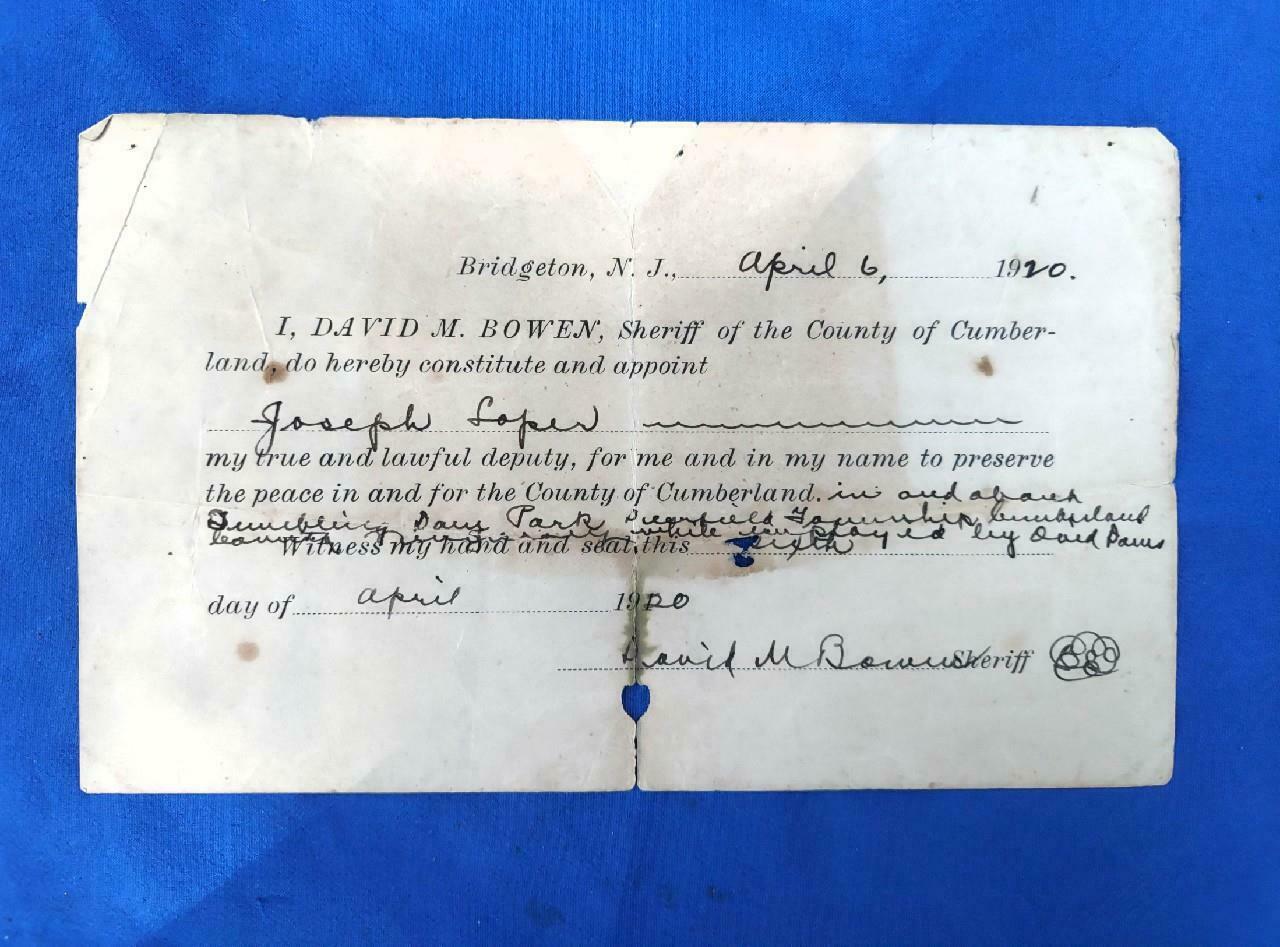 Bridgeton, N. J., April 6, 1920.
I, DAVID M. BOWEN, Sheriff of the County of Cumber-
land, do hereby constitute and appoint
Joseph Loper
my true and lawful deputy, for me and in my name to preserve
the peace in and for the County of Cumberland. in and about
Tumbling Dam Park Deerfield Township, Cumberland
County while employed by David
Witness my hand and seal, this sixth
day of April 1920
David M Bowen Sheriff